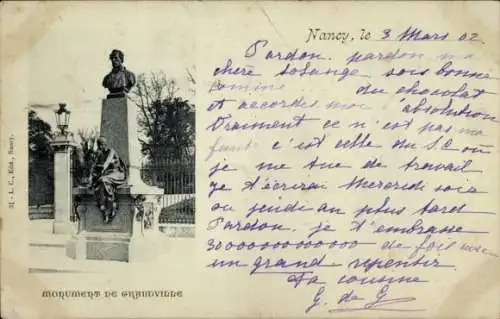 Nancy, le 3 Mars 02
Pardon, pardon ma
chère Solange sois bonne
comme du chocolat
et accordes moi l'absolution
Vraiment ce n'est pas ma
faute c'est celle du S.C où
je me tue de travail
Je t'écrirai Mercredi soir
ou jeudi au plus tard
Pardon, je t'embrasse
de fois avec
un grand repentir
Ta cousine
G. de G
MONUMENT DE GRANDVILLE
L. C., Edit., Nancy.